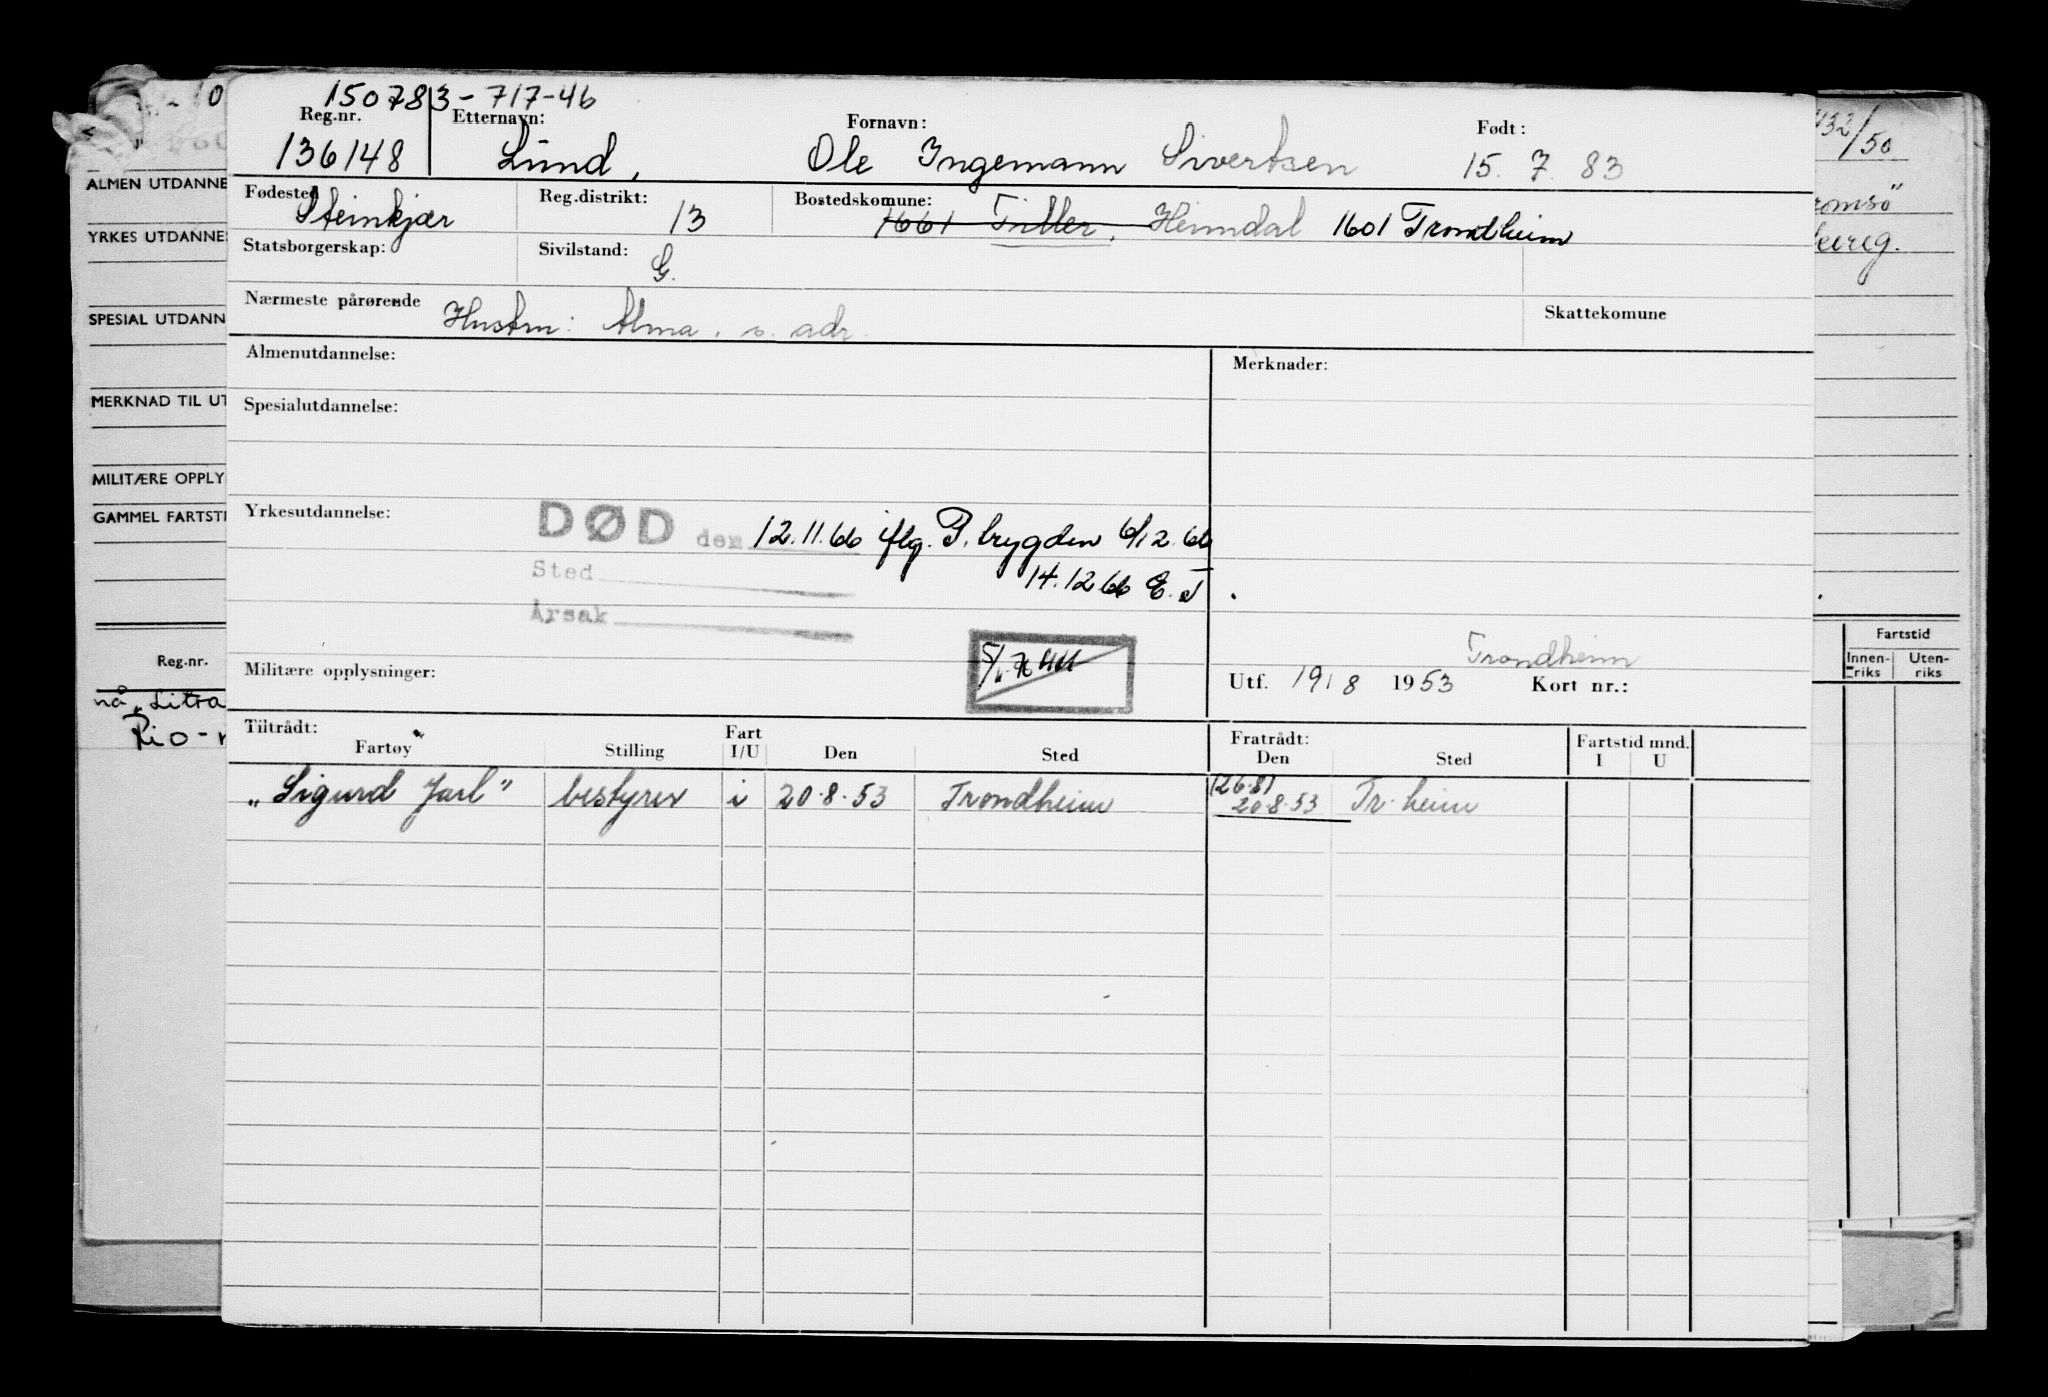 150783-717-46
Reg.nr. Etternavn: Fornavn: Født:
136148 Lund, Ole Ingemann Sivertsen 15. 7. 83
Fødested Reg.distrikt: Bostedskomune:
Steinkjær 13 1661 Tiller, Heimdal 1601 Trondheim
Statsborgerskap: Sivilstand:
G.
Nærmeste pårørende Skattekomune
Hustru: Alma, s. adr.
Almenutdannelse: Merknader:
Spesialutdannelse:
Yrkesutdannelse:
DØD den 12.11.66 iflg. P. brygden 6/12.66
Sted 14.12 66 E.T
Årsak
Trondheim
Militære opplysninger: Utf. 19/8 1953 Kort nr.:
Tiltrådt: Fratrådt: Fartstid mnd.
Fartøy Stilling Fart I/U Den Sted Den Sted I U
(26.8)
„Sigurd Jarl" bestyrer i 20.8.53 Trondheim 20.8.53 Tr.heim
ALMEN UTDANNE
YRKES UTDANNE
SPESIAL UTDANN
MERKNAD TIL UT
MILITÆRE OPPLY
GAMMEL FARTSTI
Reg.nr.
nå „Litra
Rio-
432/50
romsö"
Fartstid
Innen-riks Uten-riks